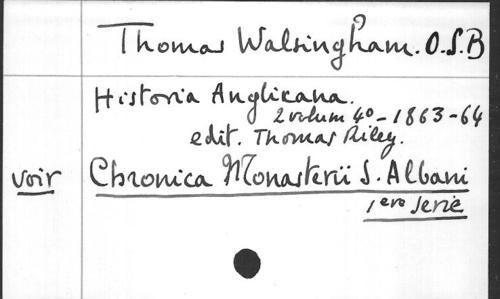 Thomas Walsingham. O.S.B
Historia Anglicana.
2 volum 4o - 1863-64
edit. Thomas Riley.
voir Chronica Monasterii S. Albani
1ere serie